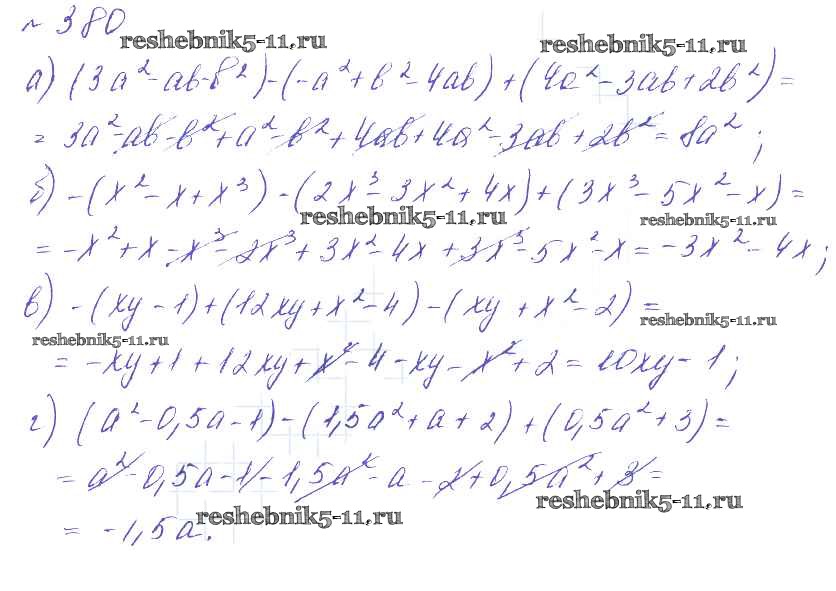 № 380
reshebnik5-11.ru
reshebnik5-11.ru
а) (3a² - ab - b²) - (-a² + b² - 4ab) + (4a² - 3ab + 2b²) =
= 3a² - ab - b² + a² - b² + 4ab + 4a² - 3ab + 2b² = 8a²;
б) -(x² - x + x³) - (2x³ - 3x² + 4x) + (3x³ - 5x² - x) =
reshebnik5-11.ru
reshebnik5-11.ru
= -x² + x - x³ - 2x³ + 3x² - 4x + 3x³ - 5x² - x = -3x² - 4x;
в) -(xy - 1) + (12xy + x² - 4) - (xy + x² - 2) =
reshebnik5-11.ru
reshebnik5-11.ru
= -xy + 1 + 12xy + x² - 4 - xy - x² + 2 = 10xy - 1;
г) (a² - 0,5a - 1) - (1,5a² + a + 2) + (0,5a² + 3) =
= a² - 0,5a - 1 - 1,5a² - a - 2 + 0,5a² + 3 =
reshebnik5-11.ru
= -1,5a.
reshebnik5-11.ru